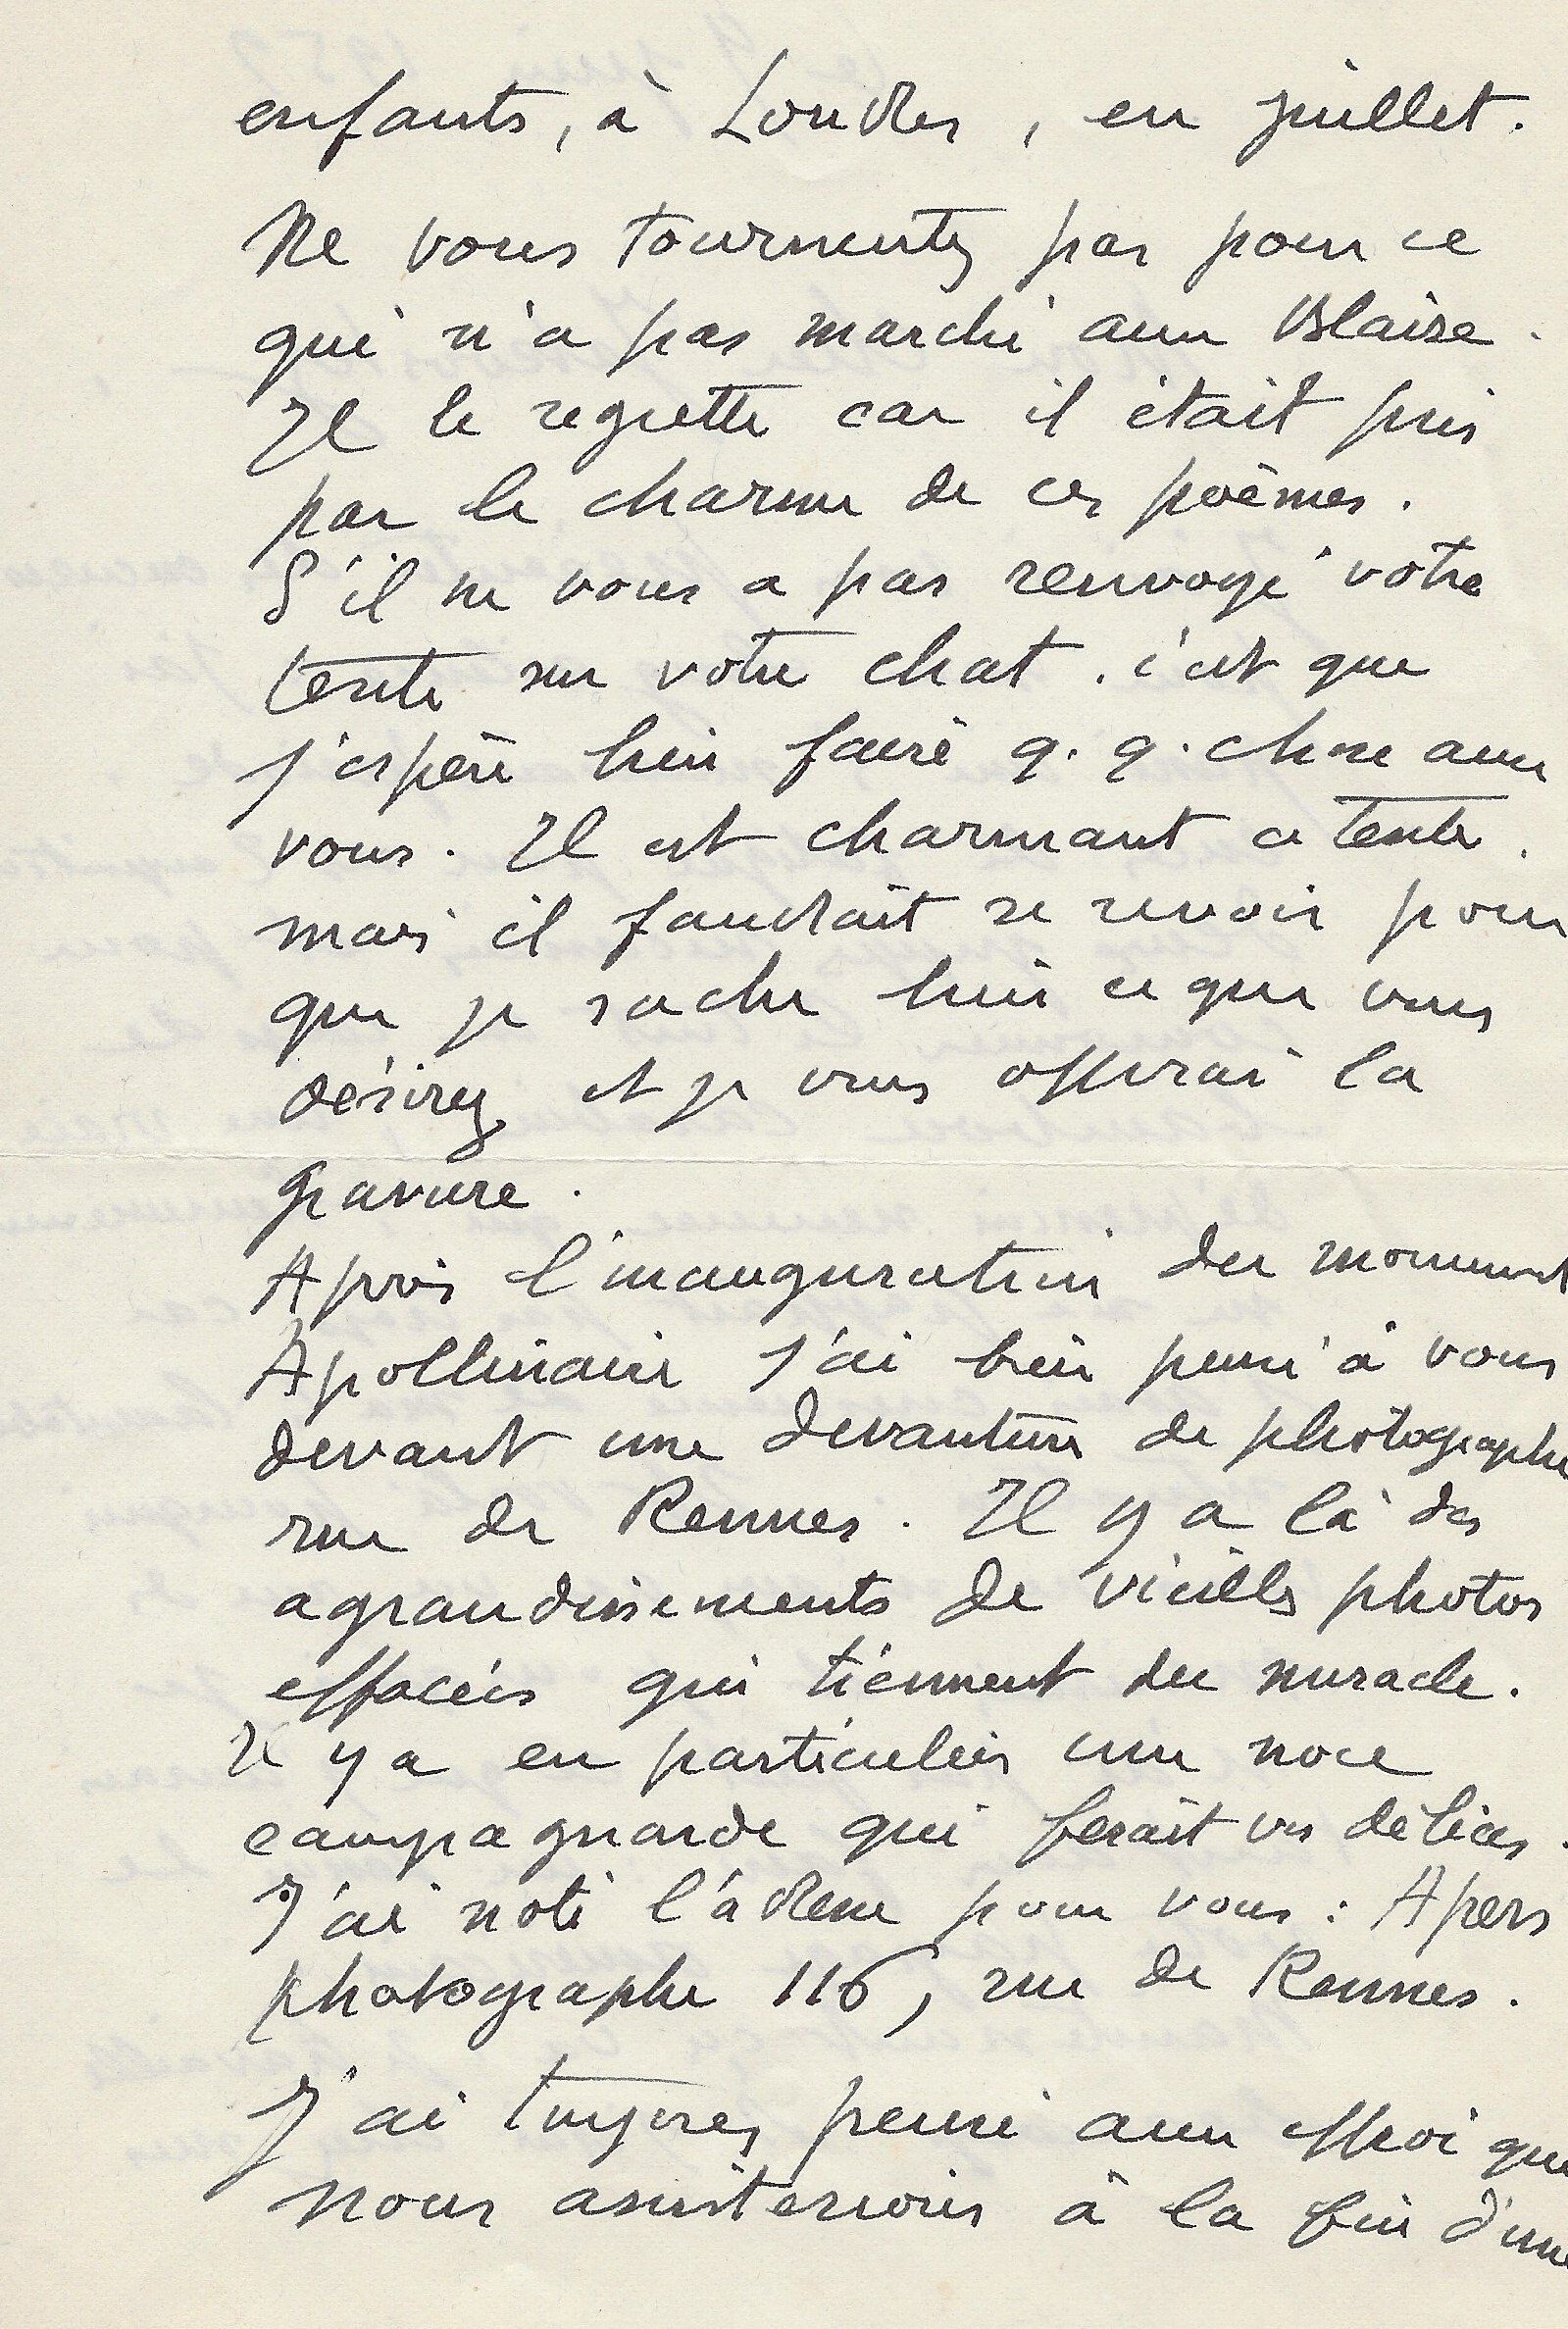 enfants, à Londres, en juillet.
Ne vous tourmentez pas pour ce
qui n'a pas marché avec Blaise.
Il le regrette car il était pris
par le charme de ces poèmes.
S'il ne vous a pas renvoyé votre
texte sur votre chat. c'est que
j'espère bien faire q.q. chose avec
vous. Il est charmant ce texte.
mais il faudrait se revoir pour
que je sache bien ce que vous
désirez et je vous offrirai la
gravure.
Après l'inauguration du monument
Apollinaire j'ai bien pensé à vous
devant une devanture de photographe
rue de Rennes. Il y a là des
agrandissements de vieilles photos
effacées qui tiennent du miracle.
Il y a en particulier une noce
campagnarde qui ferait vos délices.
J'ai noté l'adresse pour vous : Apers
photographe 116, rue de Rennes.
J'ai toujours pensé avec effroi que
nous assisterions à la fin d'une